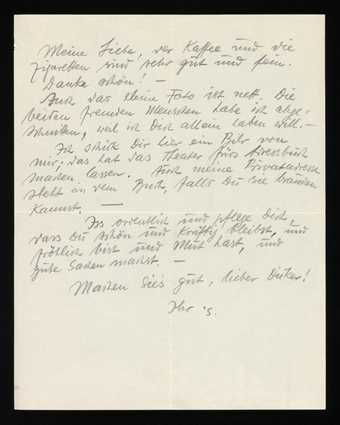 Meine Liebe, der Kaffee und die
Zigaretten sind sehr gut und fein.
Danke schön! —
Auch das kleine Foto ist nett. Die
beiden fremden Menschen habe ich abge-
schnitten, weil ich Dich allein haben will. —
Ich schick Dir hier ein Bild von
mir; das hat das Theater fürs Adressbuch
machen lassen. Auch meine Privatadresse
steht in dem Buch, falls Du sie brauchen
kannst. —
Iss ordentlich und pflege Dich,
dass Du schön und kräftig bleibst, und
fröhlich bist und Mut hast, und
gute Sachen machst. —
Machen Sie's gut, lieber Dicker!
Ihr 's.